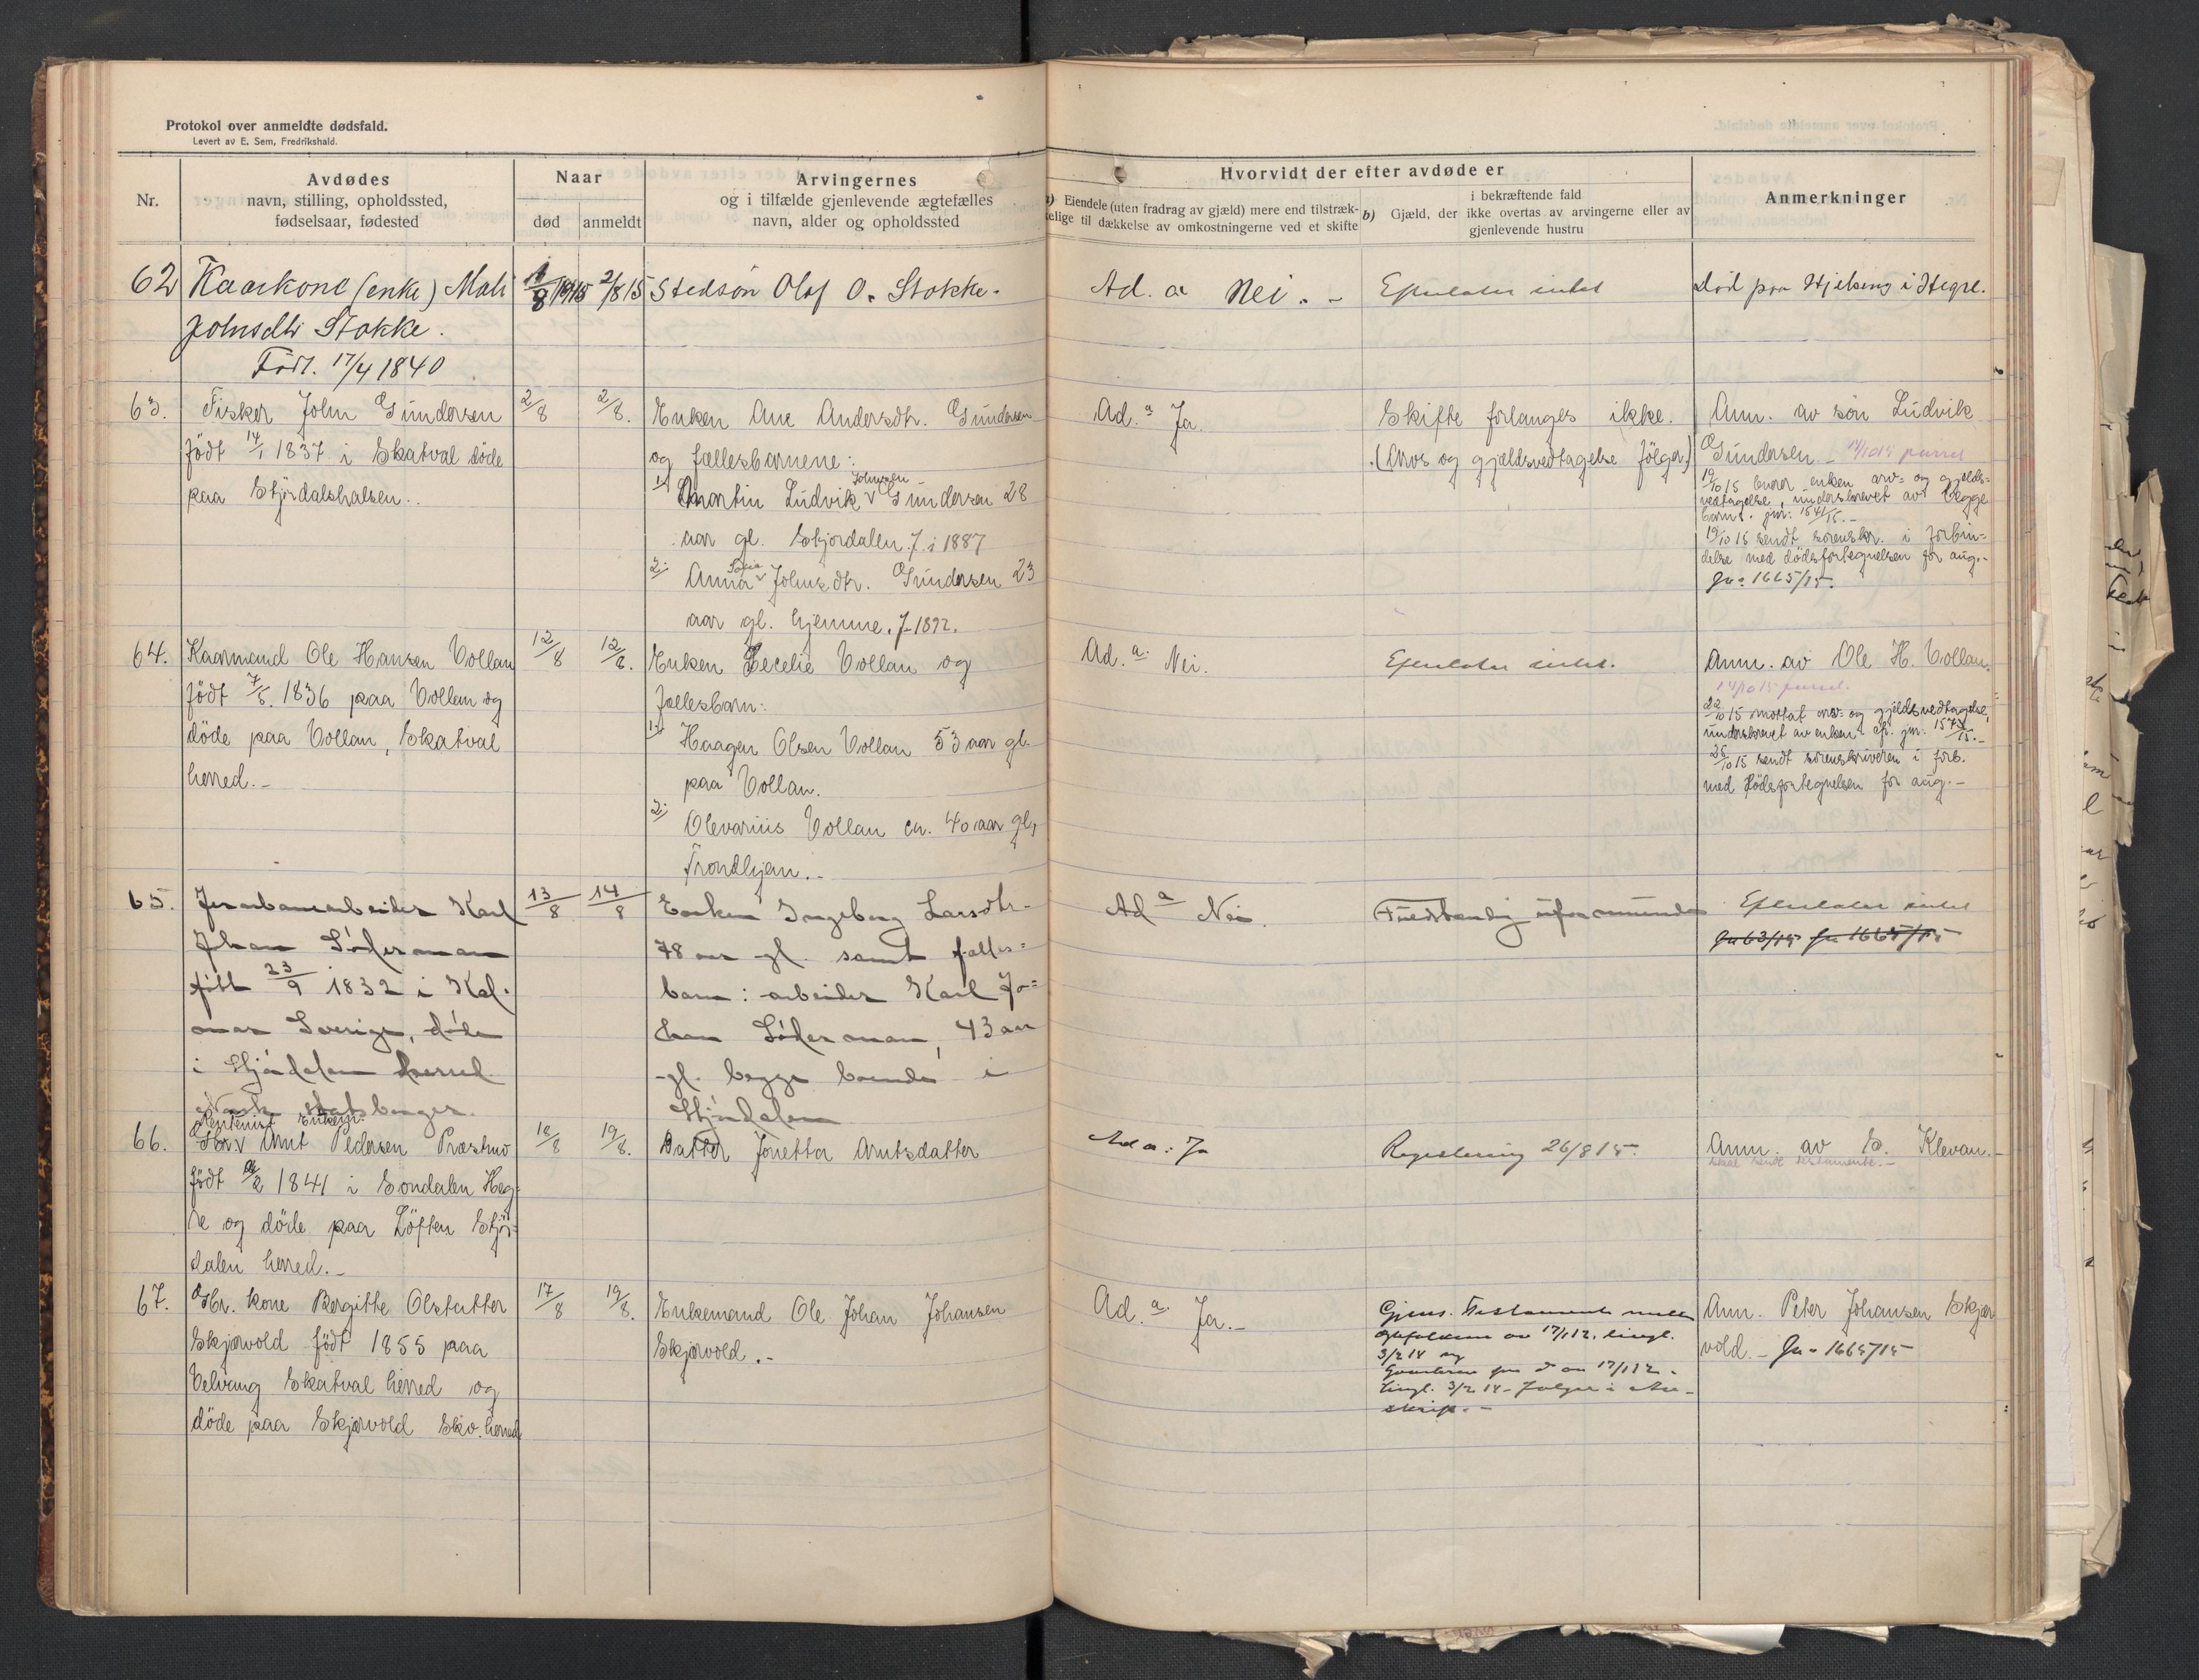 Protokol over anmeldte dødsfald.
Levert av E. Sem, Fredrikshald.
Nr.
Avdødes
navn, stilling, opholdssted,
fødselsaar, fødested
Naar
død
anmeldt
Arvingernes
og i tilfælde gjenlevende ægtefælles
navn, alder og opholdssted
Hvorvidt der efter avdøde er
Eiendele (uten fradrag av gjæld) mere end tilstræk-
kelige til dækkelse av omkostningerne ved et skifte
b) Gjæld, der
i bekræftende fald
ikke overtas av arvingerne eller av
gjenlevende hustru
Anmerkninger
62
Kaarkone (enke) Mali
Johnsdtr Stokke.
Født. 17/4 1840
1/8 1915
2/8 15
Stedsøn Olaf O. Stokke.
Ad. a Nei.
Efterlater intet
Død paa Hjelseng i Hegre.
63.
Fisker John Gundersen
født 14/1 1837 i Skatval døde
paa Stjørdalshalsen.
2/8
2/8.
Enken Ane Andersdtr. Gundersen
og fællesbarnene:
1) Martin Ludvik Johnsen Gundersen 28
aar gl. Stjørdalen. f. i 1887
2; Anna Johnsdtr. Gundersen 23
aar gl. hjemme. f. 1892.
Ad. a Ja.
Skifte forlanges ikke.
(Arvs og gjældsvedtagelse følger)
Anm. av søn Ludvik
Gundersen - 14/10 15 purret
19/10 15 enken arv- og gjælds-
vedtagelse, underskrevet av begge
barn. jnr: 1541/15.-
19/10 15 sendt sorenskr. i forbin-
delse med dødsfortegnelsen for aug.-
Jn: 1665/15.
64.
Kaarmand Ole Hansen Vollan
født 7/5. 1836 paa Vollan og
døde paa Vollan, Skatval
herred.-
12/8
12/8.
Enken Cecelie Vollan og
fællesbarn:
1; Haagen Olsen Vollan 53 aar gl.
paa Vollan.
2; Olevarius Vollan ca. 40 aar gl,
Trondhjem.-
Ad. a: Nei.
Efterlater intet.
Anm. av Ole H. Vollan.
14/10 15 purret.
22/10 15 mottat arv- og gjældsvedtagelse,
underskrevet av enken. cfr. jnr: 1573/15.-
25/10 15 sendt sorenskriveren i forb.
med dødsfortegnelsen for aug.-
65.
Jernbanearbeider Karl
Johan Søderman
født 23/9 1832 i Kal-
mar Sverige, døde
i Stjørdalen herred
norsk statsborger.
13/8
14/8
Enken Ingeborg Larsdtr-
78 aar gl. samt fælles=
barn: arbeider Karl Jo=
han Søderman, 43 aar
gl. begge boende i
Stjørdalen
Ad a Nei.
Fuldstændig uformuende
Efterlater intet
66.
Rentenist Enkem.
Arnt Pedersen Præstmo
født 2/2 1841 i Sondalen Heg-
re og døde paa Løften Stjør=
dalen herred.-
18/8
19/8.
Datter Jonetta Arntsdatter
Ad a: Ja
Registering 26/8 15.
Anm. av E. Klevan.-
skal sendt testamente.-
67.
Gbr. kone Bergitte Olsdatter
Skjervold født 1855 paa
Velvang Skatval herred og
døde paa Skjervold Skv. herred
17/8
19/8.
Enkemand Ole Johan Johansen
Skjervold.-
Ad. a. Ja.-
Gjens. Testamente mellem
egtefolkene av 17/1 12. tingl.
3/2 14 og
av 17/1 12 -
tingl. 3/2 14 - følger i Av-
skrift.-
Anm. Peter Johansen Skjer
vold.- Jn- 1665/15